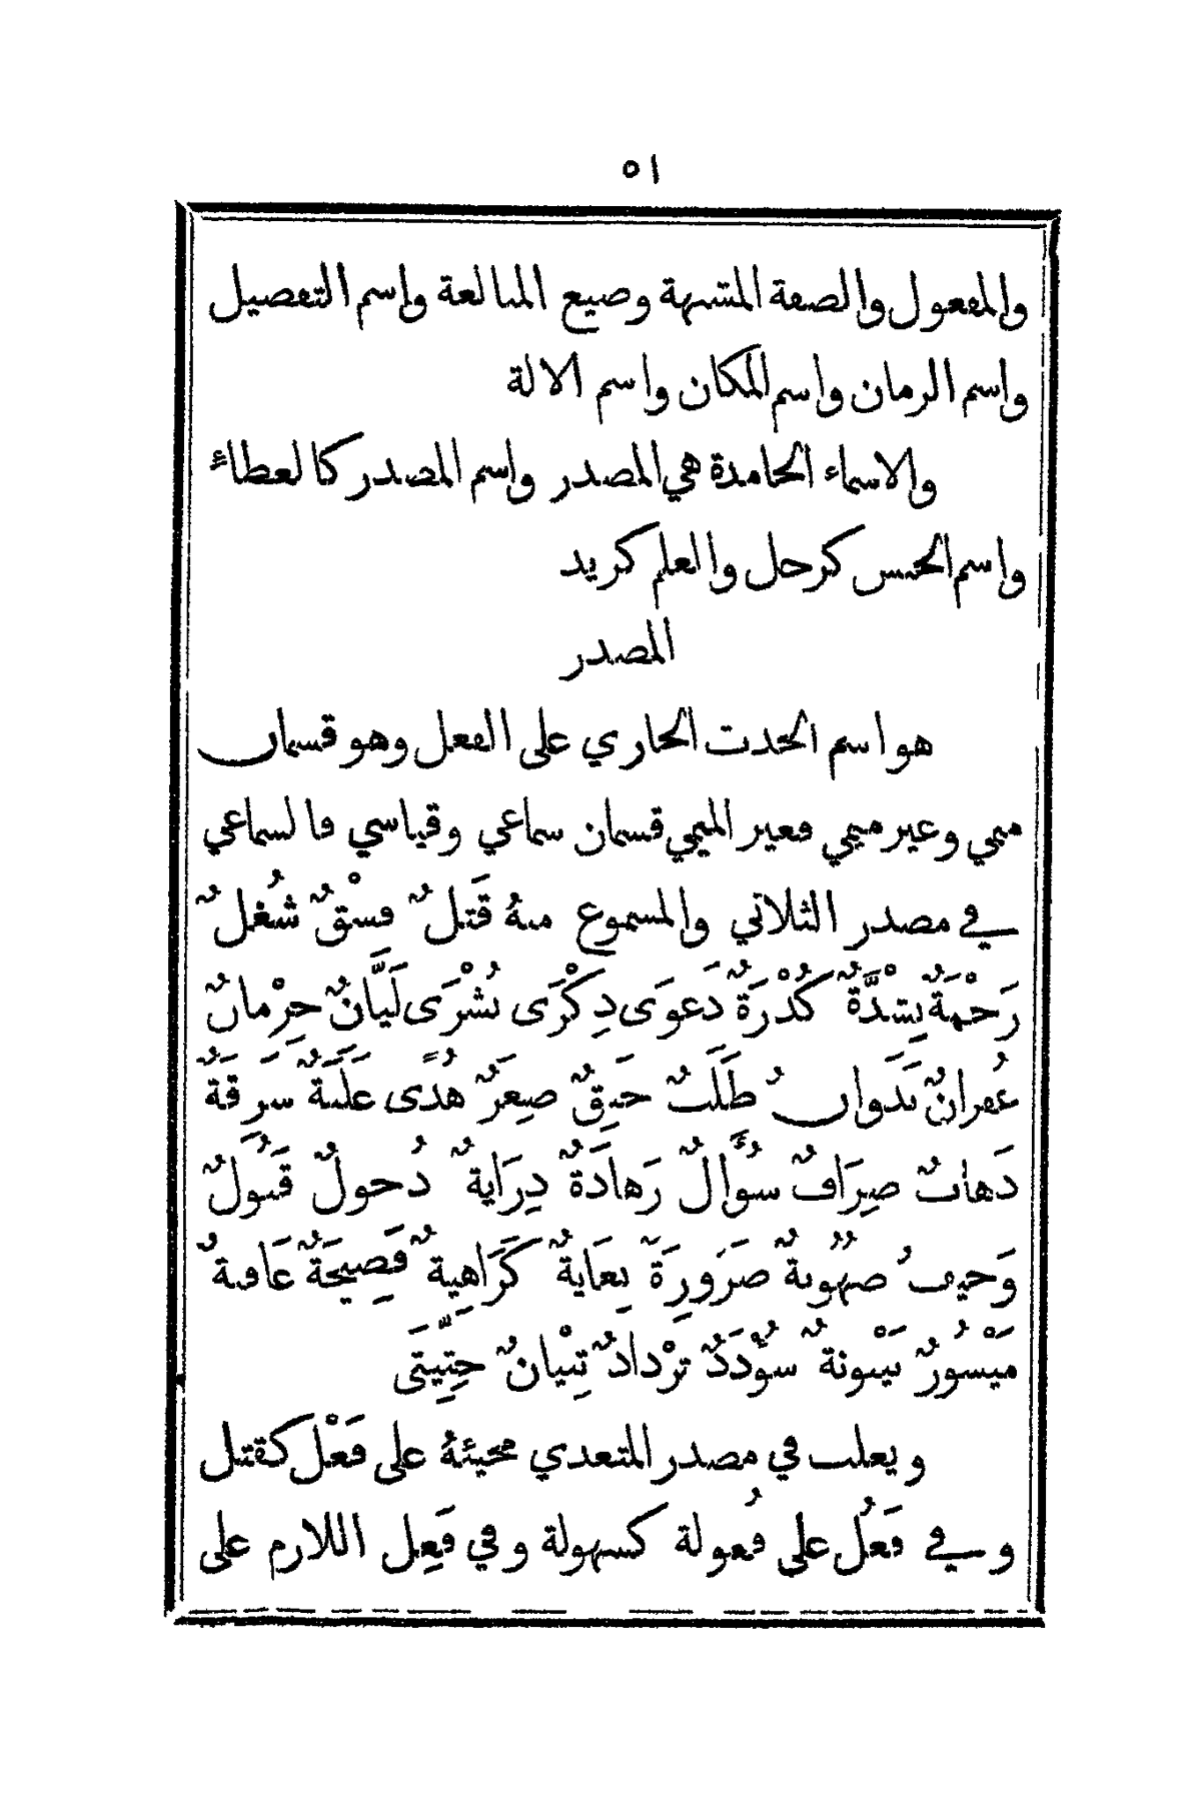 ٥١
والمفعول والصفة المشبهة وصيغ المبالغة واسم التفضيل
واسم الزمان واسم المكان واسم الالة
والاسماء الجامدة هي المصدر واسم المصدر كالعطاء
واسم الجنس كرجل والعلم كزيد
المصدر
هو اسم الحدث الجاري على الفعل وهو قسمان
ميمي وغير ميمي فغير الميمي قسمان سماعي وقياسي فالسماعي
في مصدر الثلاثي والمسموع منهُ قَتلٌ فسْقٌ شُغلٌ
رَحْمَةٌ نِشْدَةٌ كُدْرَةٌ دَعوَى ذِكْرَى بُشْرَى لَيَّانٌ حِرْمانٌ
غُفرانٌ نَزَوانٌ طَلَبٌ خَنِقٌ صِغَرٌ هُدًى غَلَبَةٌ سَرِقَةٌ
ذَهابٌ صِرَافٌ سُؤَالٌ زَهادَةٌ دِرَايةٌ دُخولٌ قَبُولٌ
وَجيفٌ صُهُوبةٌ ضَرُورِةٌ بِغَايةٌ كَرَاهِيةٌ فَضِيحَةٌ عَاقبةٌ
مَيْسُورٌ بَيْنونةٌ سُؤْدَدٌ تَرْدادٌ تِبْيانٌ حِثِّيثَى
ويغلب في مصدر المتعدي مجيئهُ على فَعْل كقتل
وفي فَعُل على فُعولة كسهولة وفي فَعِل اللازم على